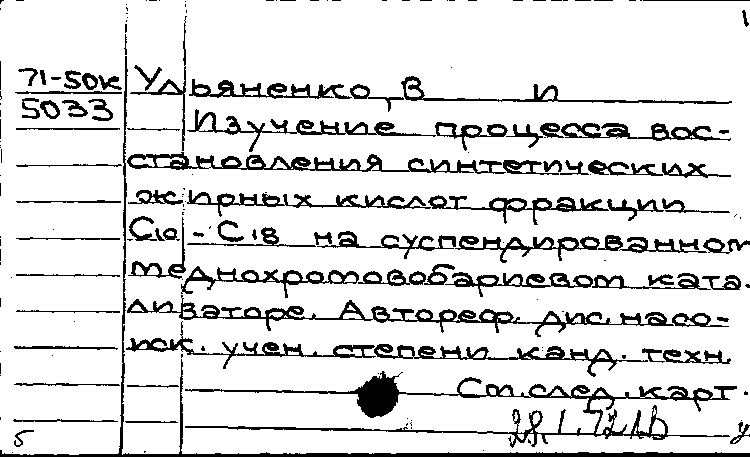 1
71-50к Ульяненко, В И
5033
Изучение процесса вос-
становления синтетических
жирных кислот фракции
C10 - C18 на суспендированном
меднохромовобариевом ката-
лизаторе. Автореф. дис. на со-
иск. учен. степени канд. техн.
См. след. карт.
28.1.72
б у